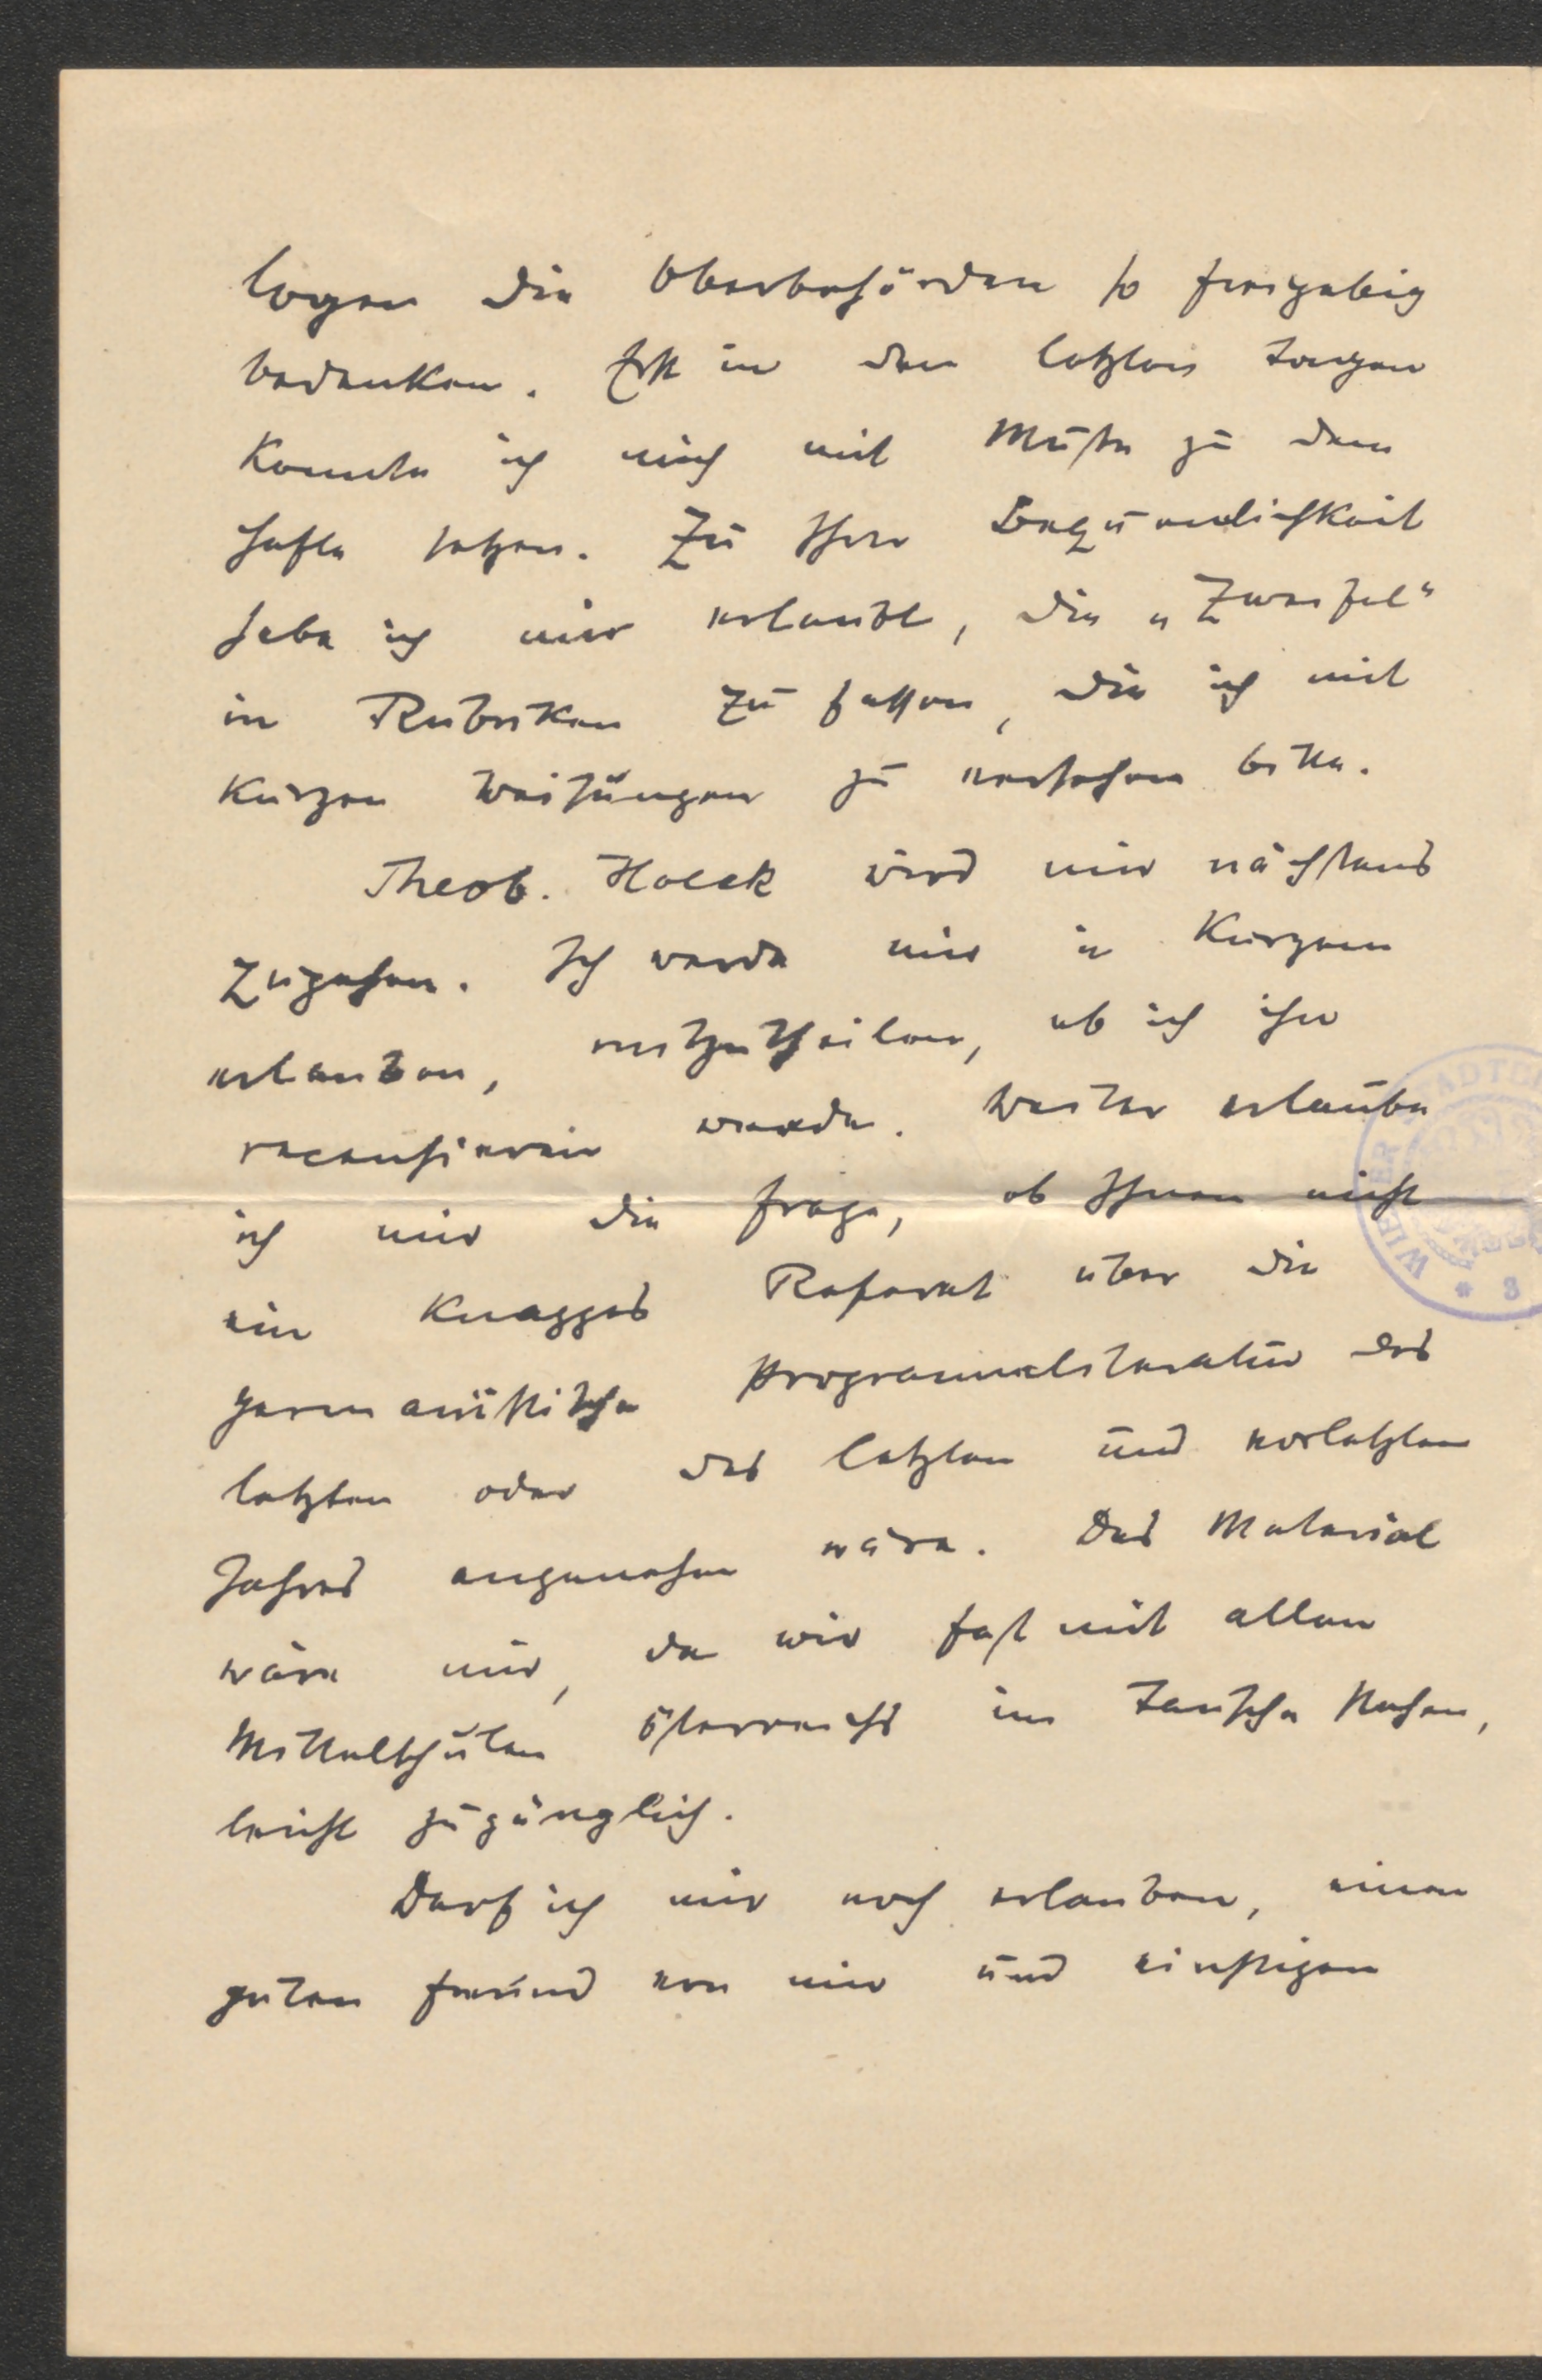 logen die Oberbehörden so freigebig
bedenken. Erst in den letzten Tagen
konnte ich mich mit Muße zu dem
Hefte setzen. Zu Ihrer Bequemlichkeit
habe ich mir erlaubt, die „Zweifel“
in Rubriken zu fassen, die ich mit
kurzen Weisungen zu versehen bitte.
Theob. Hoeck wird mir nächstens
zugehen. Ich werde mir in Kurzem
erlauben, mitzutheilen, ob ich ihn
recensieren werde. Weiter erlaube
ich mir die Frage, ob Ihnen nicht
ein knappes Referat über die
germanistische Programmliteratur des
letzten oder des letzten und vorletzten
Jahres angenehm wäre. Das Material
wäre mir, da wir fast mit allen
Mittelschulen Österreichs im Tausche stehen,
leicht zugänglich.
Darf ich mir noch erlauben, einen
guten Freund von mir und einstigen
WIENER STADTB